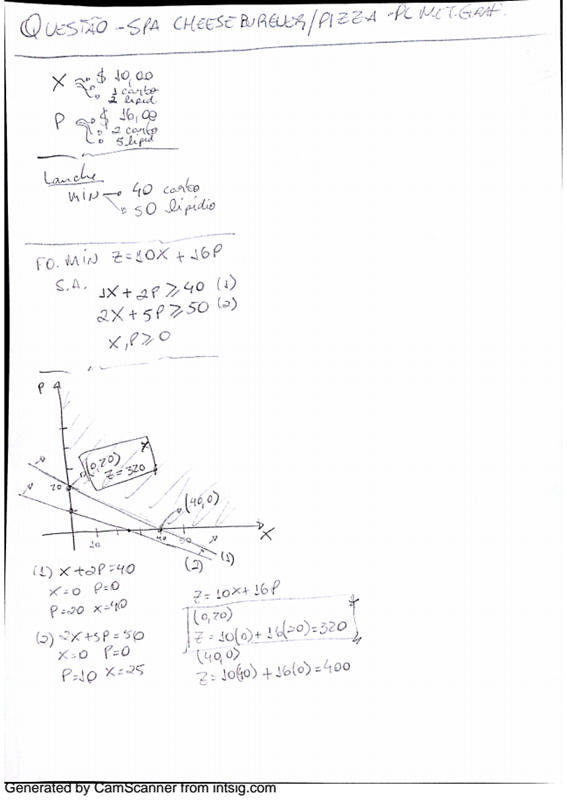 QUESTÃO - SPA CHEESEBURGUER/PIZZA - PL MET. GRAF.
X → $ 10,00
1 carbo
2 lipid
P → $ 16,00
2 carbo
5 lipid
Lanche
MIN → 40 carbo
50 lipídio
FO. MIN Z=10X + 16P
S.A. 1X + 2P ≥ 40 (1)
2X + 5P ≥ 50 (2)
X, P ≥ 0
P
(0,20)
Z = 320
20
(40,0)
X
10
40
50
(1)
(2)
(1) X + 2P = 40
X=0 P=0
P=20 X=40
(2) 2X + 5P = 50
X=0 P=0
P=10 X=25
Z = 10X + 16P
(0,20)
Z = 10(0) + 16(20) = 320
(40,0)
Z = 10(40) + 16(0) = 400
Generated by CamScanner from intsig.com